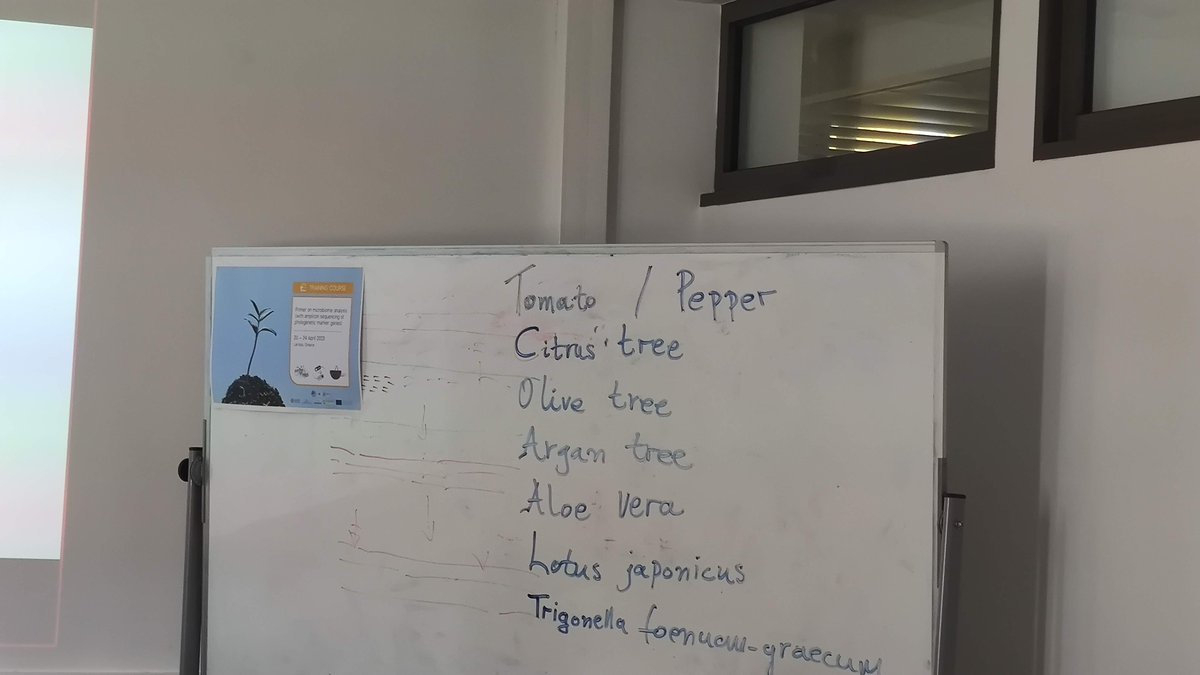 TRAINING COURSE
Primer on microbiome analysis
(with amplicon sequencing of
phylogenetic marker genes)
20 - 24 April 2023
Larissa, Greece
Tomato / Pepper
Citrus tree
Olive tree
Argan tree
Aloe vera
Lotus japonicus
Trigonella foenum-graecum